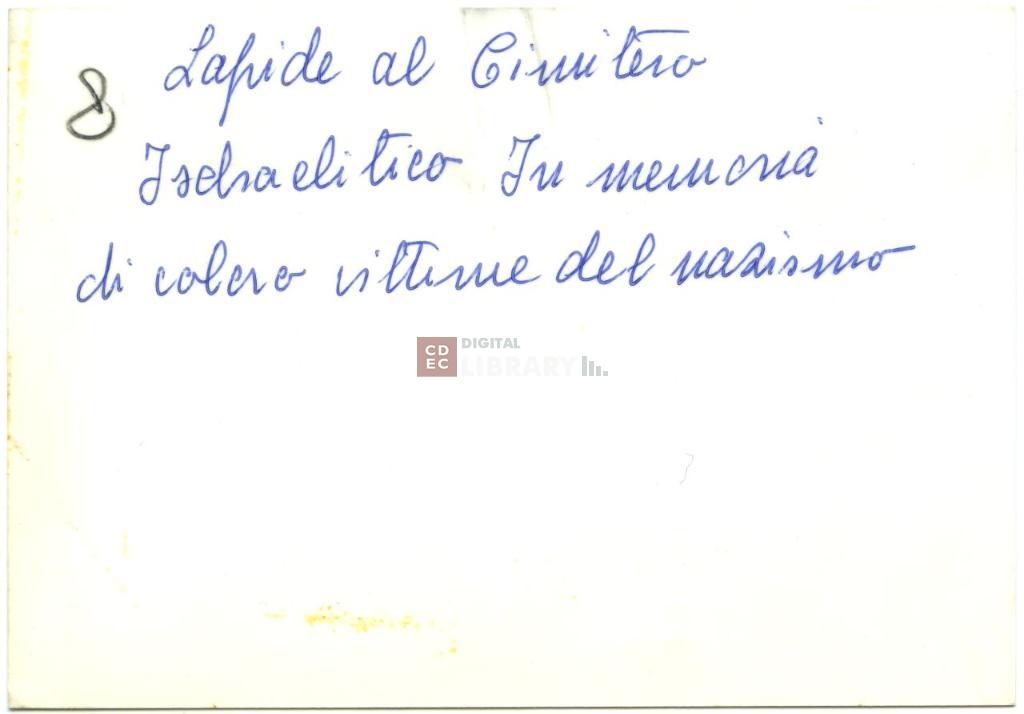 8
Lapide al Cimitero
Isdraelitico In memoria
di coloro vittime del nazismo
CD
EC
DIGITAL
LIBRARY